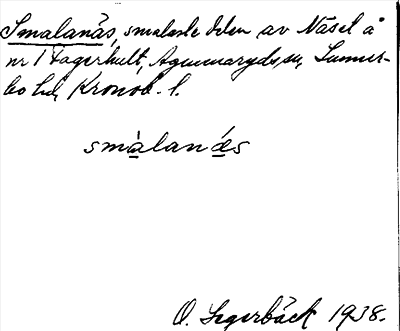 Smalanäs, smalaste delen av Näset å
nr 1 Fagerhult, Agunnaryds sn, Sunner-
bo hd, Kronob. l.
smàlanǽs
O. Segerbäck 1938.